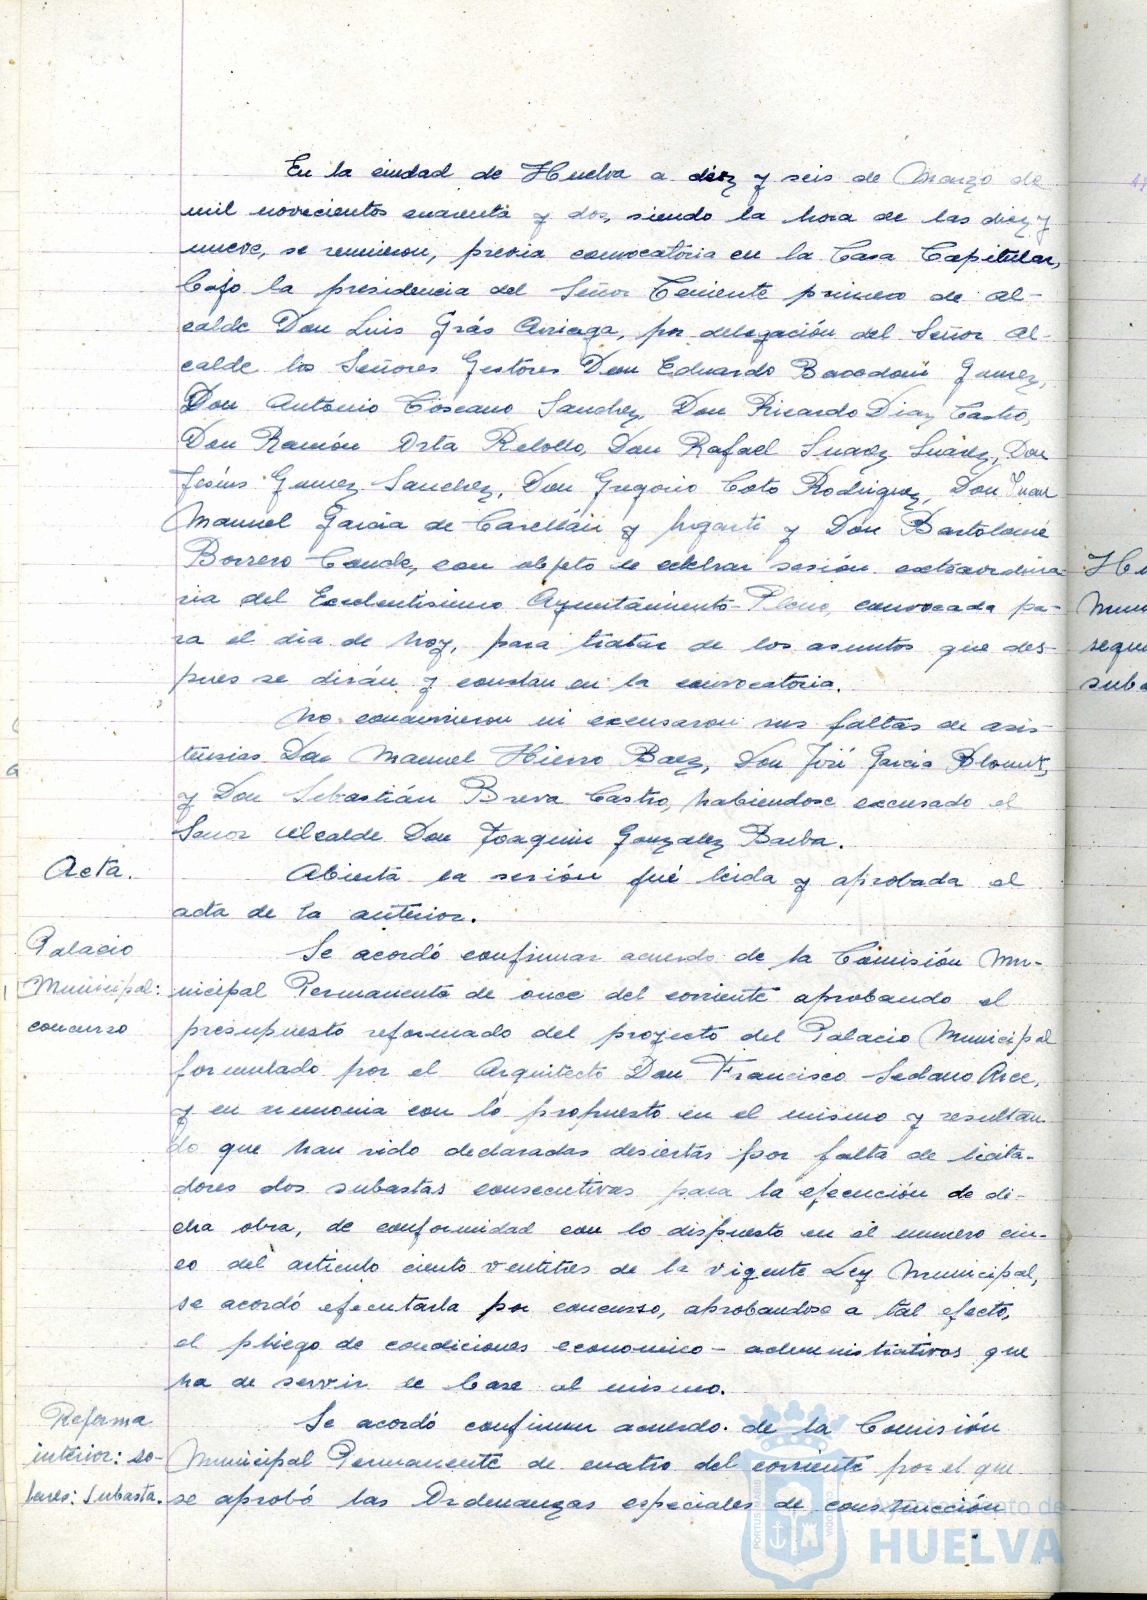 En la ciudad de Huelva a diez y seis de Marzo de
mil novecientos cuarenta y dos, siendo la hora de las diez y
nueve, se reunieron, previa convocatoria en la Casa Capitular,
bajo la presidencia del Señor Teniente primero de Al-
calde Don Luis Grás Arriaga, por delegación del Señor Al-
calde los Señores Gestores Don Eduardo Gamez,
Don Antonio Toscano Sanchez, Don Ricardo Diaz Castro,
Don Ramón Orta Rebollo, Don Rafael Suarez Suarez, Don
Jesús Gamez Sanchez, Don Gregorio Coto Rodriguez, Don Juan
Manuel Garcia de y y Don Bartolomé
Borrero Conde, con objeto de celebrar sesión extraordina-
ria del Excelentisimo Ayuntamiento-Pleno, convocada pa-
ra el dia de hoy, para tratar de los asuntos que des-
pues se dirán y constan en la convocatoria.
No concurrieron ni excusaron sus faltas de asis-
tencias Don Manuel Hierro Baez, Don José Garcia
y Don Sebastián Breva Castro, habiendose excusado el
Señor Alcalde Don Joaquin González Barba.
Acta.
Abierta la sesión fué leida y aprobada el
acta de la anterior.
Palacio
Municipal:
concurso
Se acordó confirmar acuerdo de la Comisión Mu-
nicipal Permanente de once del corriente aprobando el
presupuesto reformado del proyecto del Palacio Municipal
formulado por el Arquitecto Don Francisco Sedano Arce,
y en armonia con lo propuesto en el mismo y resultan-
do que han sido declaradas desiertas por falta de licita-
dores dos subastas consecutivas para la ejecución de di-
cha obra, de conformidad con lo dispuesto en el numero cin-
co del articulo ciento ventitres de la vigente Ley Municipal,
se acordó ejecutarla por concurso, aprobandose a tal efecto,
el pliego de condiciones economico-administrativas que
ha de servir de base al mismo.
Reforma
interior: so-
lares: Subasta.
Se acordó confirmar acuerdo de la Comisión
Municipal Permanente de cuatro del corriente por el que
se aprobó las Ordenanzas especiales de construcción
Ayuntamiento de
HUELVA